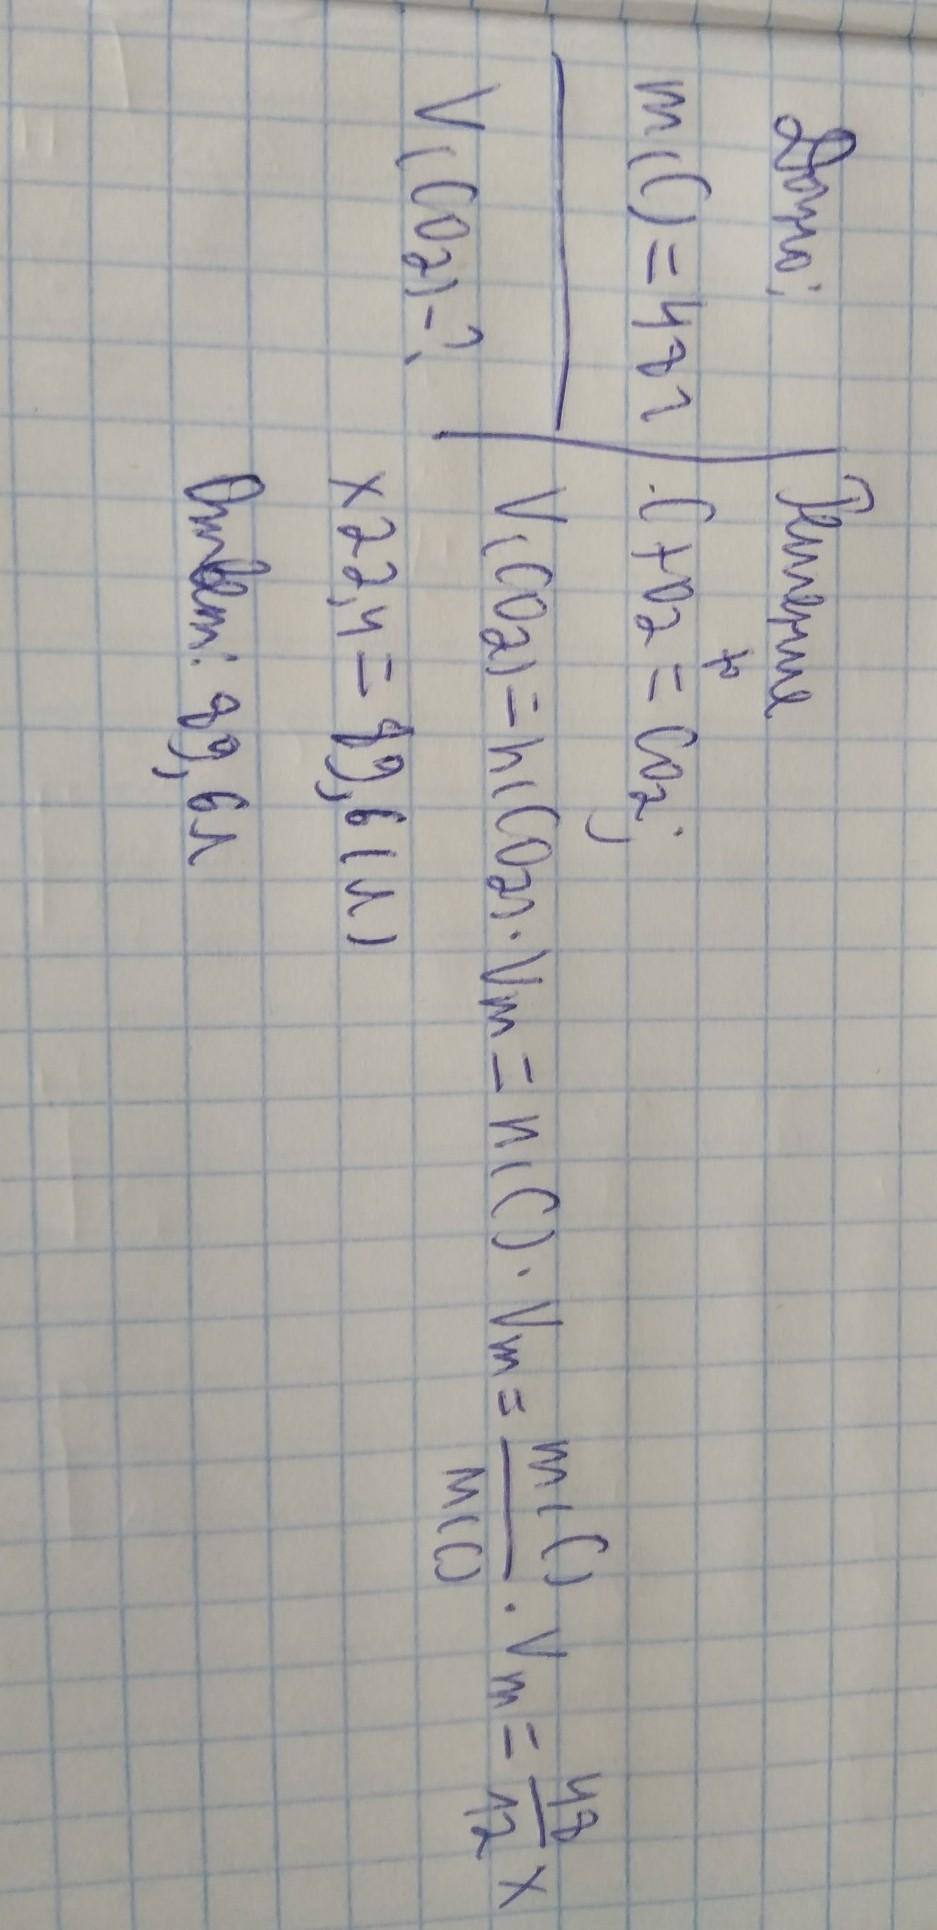 Дано:
m(C)=48г
V(CO2)-?
Решение
C+O2 = CO2;
t°
V(CO2)=n(CO2)·Vm=n(C)·Vm=m(C)/M(C)·Vm=48/12 x
x22,4=89,6(л)
Ответ: 89,6л